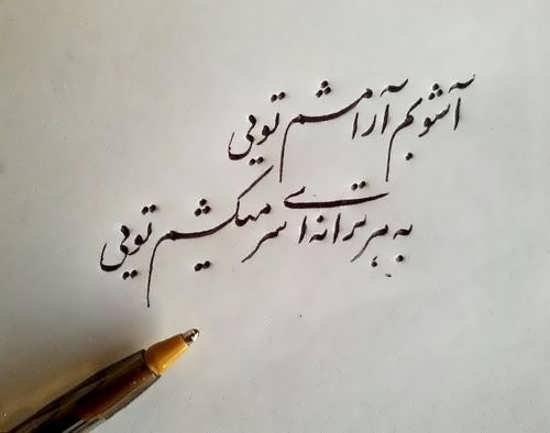 آشوبم آرامشم تویی
به هر ترانه‌ای سر میکشیم تویی